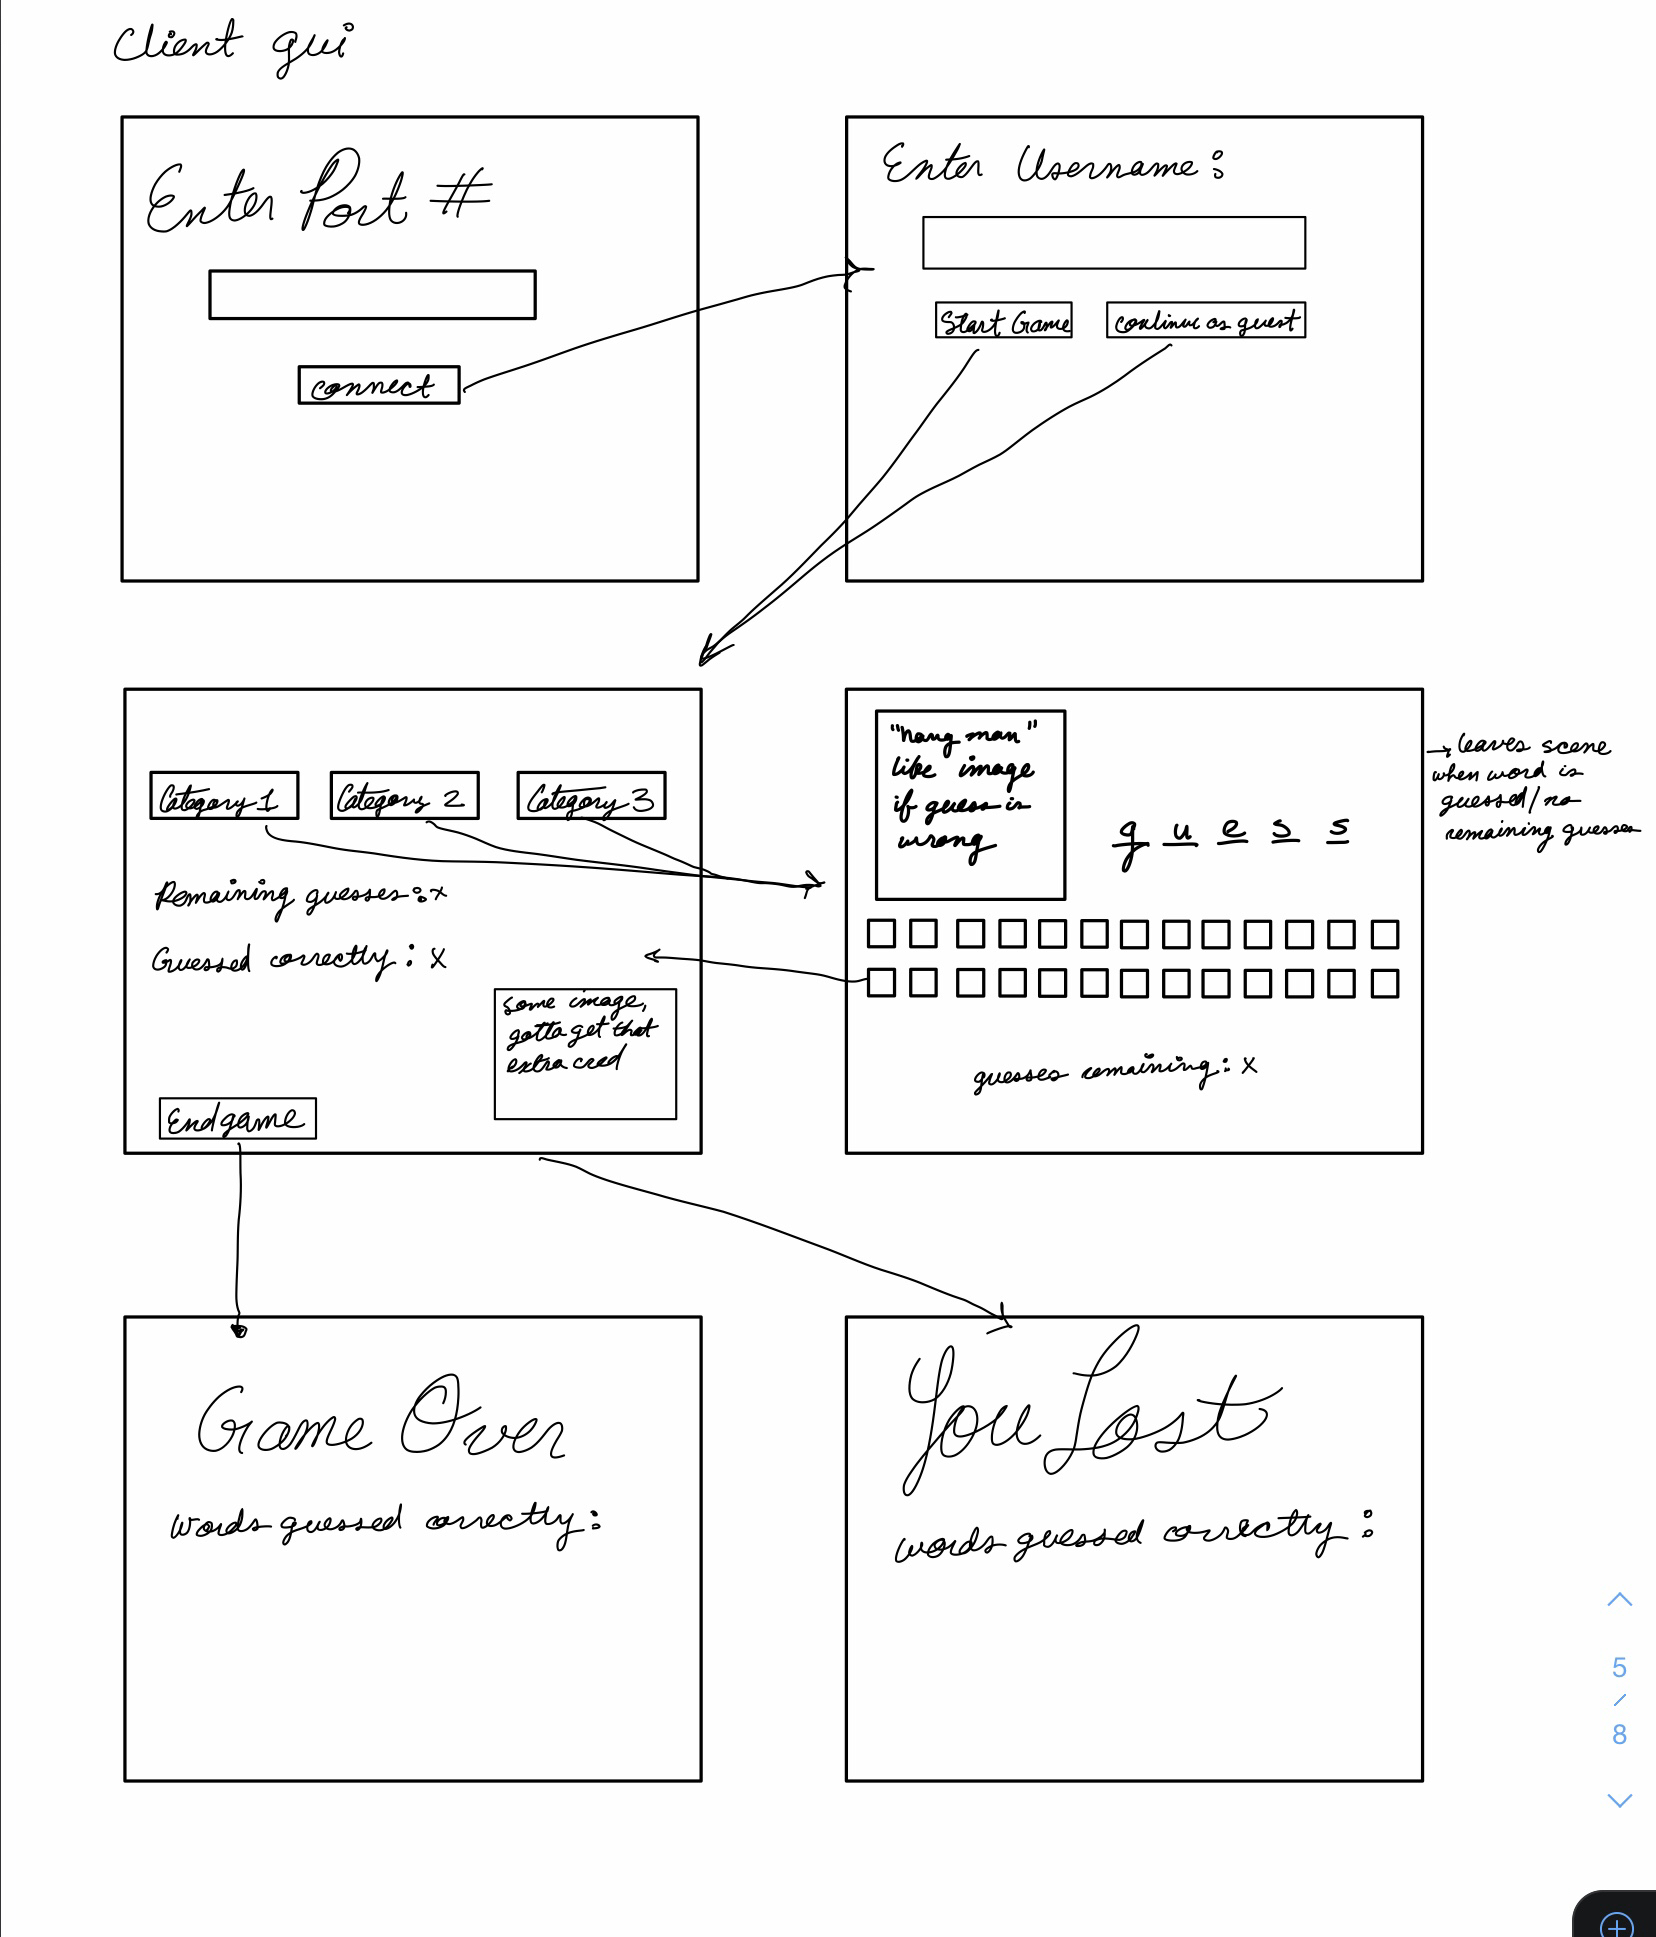 Client gui
Enter Port #
connect
Enter Username:
Start Game
continue as guest
Category 1
Category 2
Category 3
Remaining guesses: x
Guessed correctly: x
some image,
gotta get that
extra cred
End game
"hang man"
like image
if guess is
wrong
g u e s s
guesses remaining: x
→ leaves scene
when word is
guessed/no
remaining guesses
Game Over
words guessed correctly:
You Lost
words guessed correctly:
5
/
8